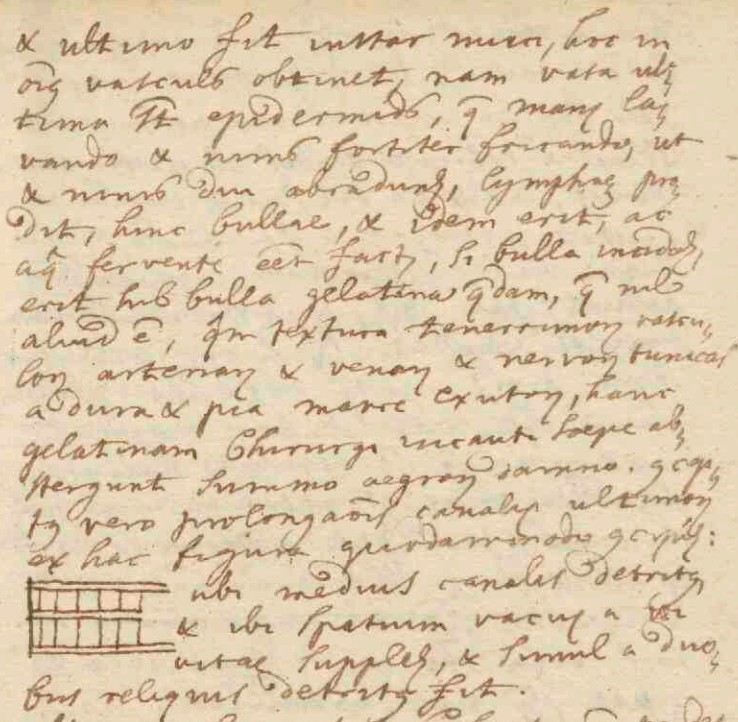 & ultimo fit instar muci, hoc in
oīq vasculis obtinet, nam vasa ul⸗
tima st̄ epidermidis, q̄ manꝫ la⸗
vando & nimis fortiter fricando, ut
& nimis diu abradunt, lympha pro⸗
dit, hinc bullae, & idem erit, ac
aq̄ fervente eēt factꝫ, si bulla incidat,
erit sub bulla gelatina q̄dam, q̄ nil
aliud ē, q̄m textura tenerrimoꝝ vascu⸗
loꝝ arteriaꝝ & venaꝝ & nervoꝝ tunicas
a dura & pia matre exutoꝝ, hanc
gelatinam Chirurgi incauti saepe ab⸗
stergunt summo aegroꝝ damno.
vero prolongaōis canalis ultimoꝝ
ex hac figura quodammodo
ubi medius canalis detritꝫ
& ibi spatium vacuꝫ a vi
vitae supplet, & simul a duo⸗
bus reliquis detritꝫ fit.